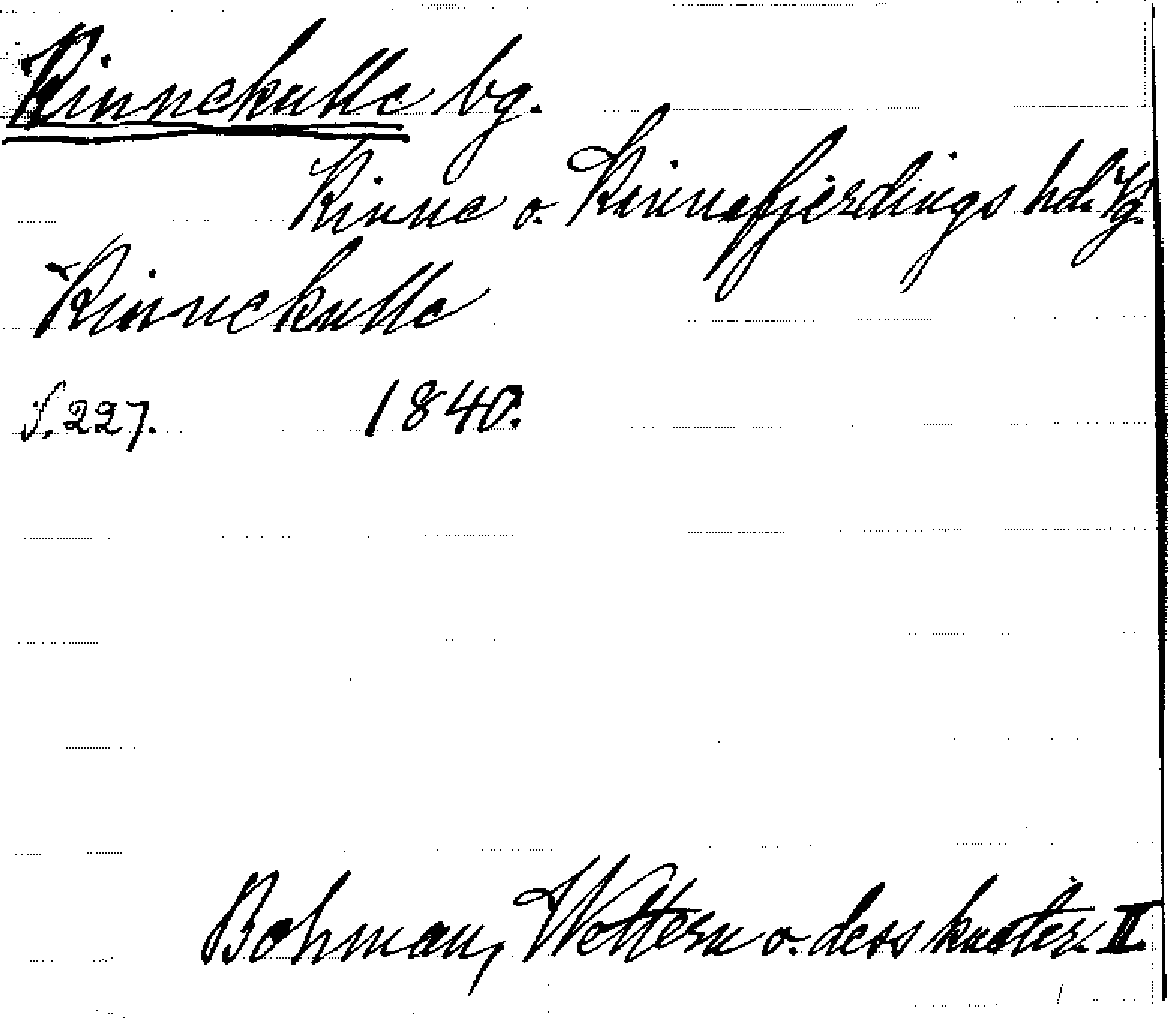 Kinnekulle bg.
Kinne o. Kinnefjerdings hd. Vg.
Kinnekulle
S. 227. 1840.
Bohman, Wettern o. dess kuster II